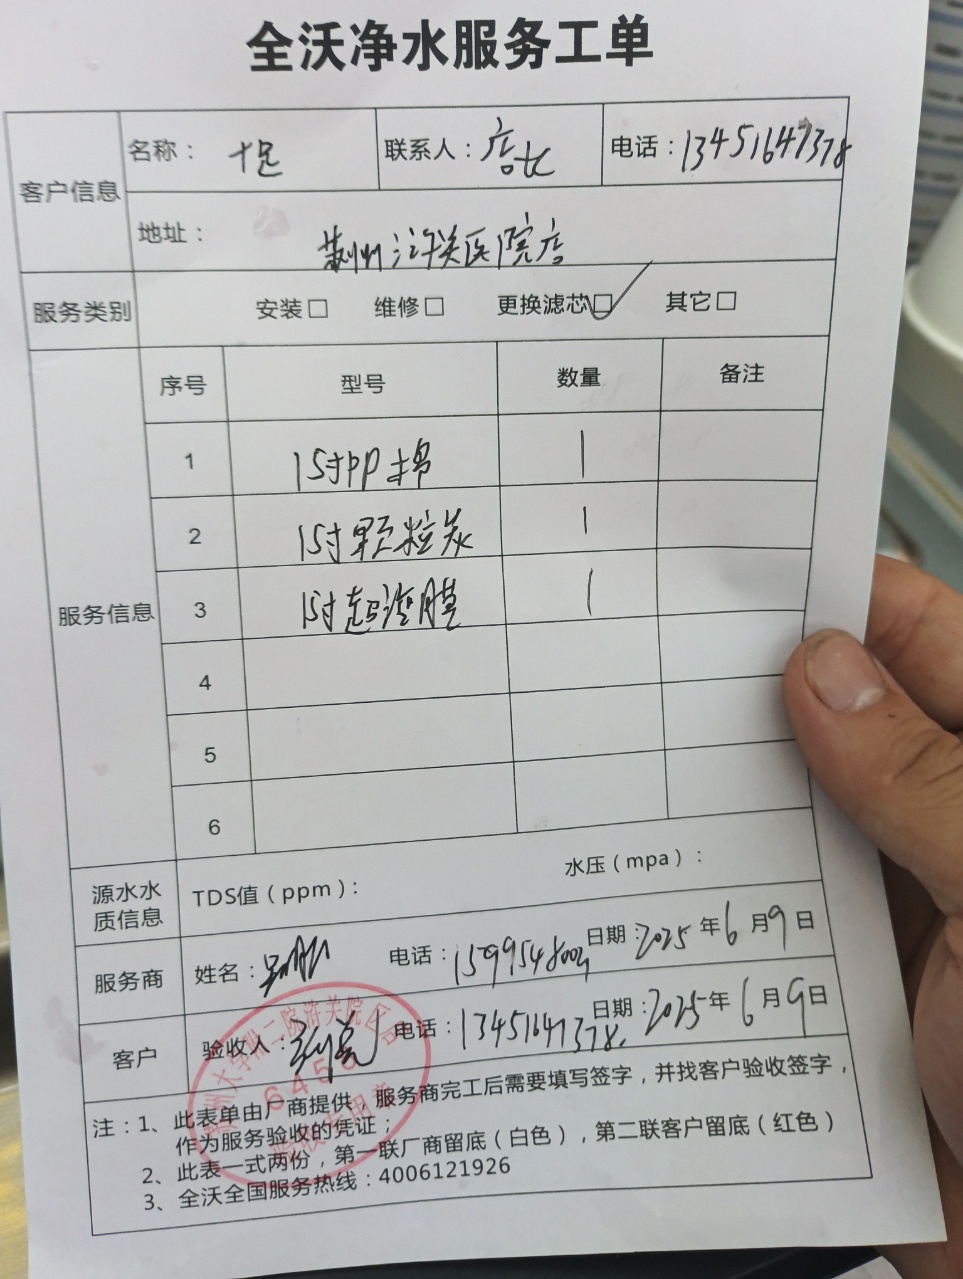 全沃净水服务工单
客户信息 名称： 十足 联系人：店长 电话：13451647378
地址： 苏州浒关医院店
服务类别 安装□ 维修□ 更换滤芯□ 其它□
服务信息 序号 型号 数量 备注
1 15寸PP棉 1
2 15寸颗粒炭 1
3 15寸超滤膜 1
4
5
6
源水水质信息 TDS值（ppm）： 水压（mpa）：
服务商 姓名： 电话： 日期：2025年6月9日
客户 验收人： 电话：13451647378. 日期：2025年6月9日
注：1、此表单由厂商提供，服务商完工后需要填写签字，并找客户验收签字，
作为服务验收的凭证；
2、此表一式两份，第一联厂商留底（白色），第二联客户留底（红色）
3、全沃全国服务热线：4006121926